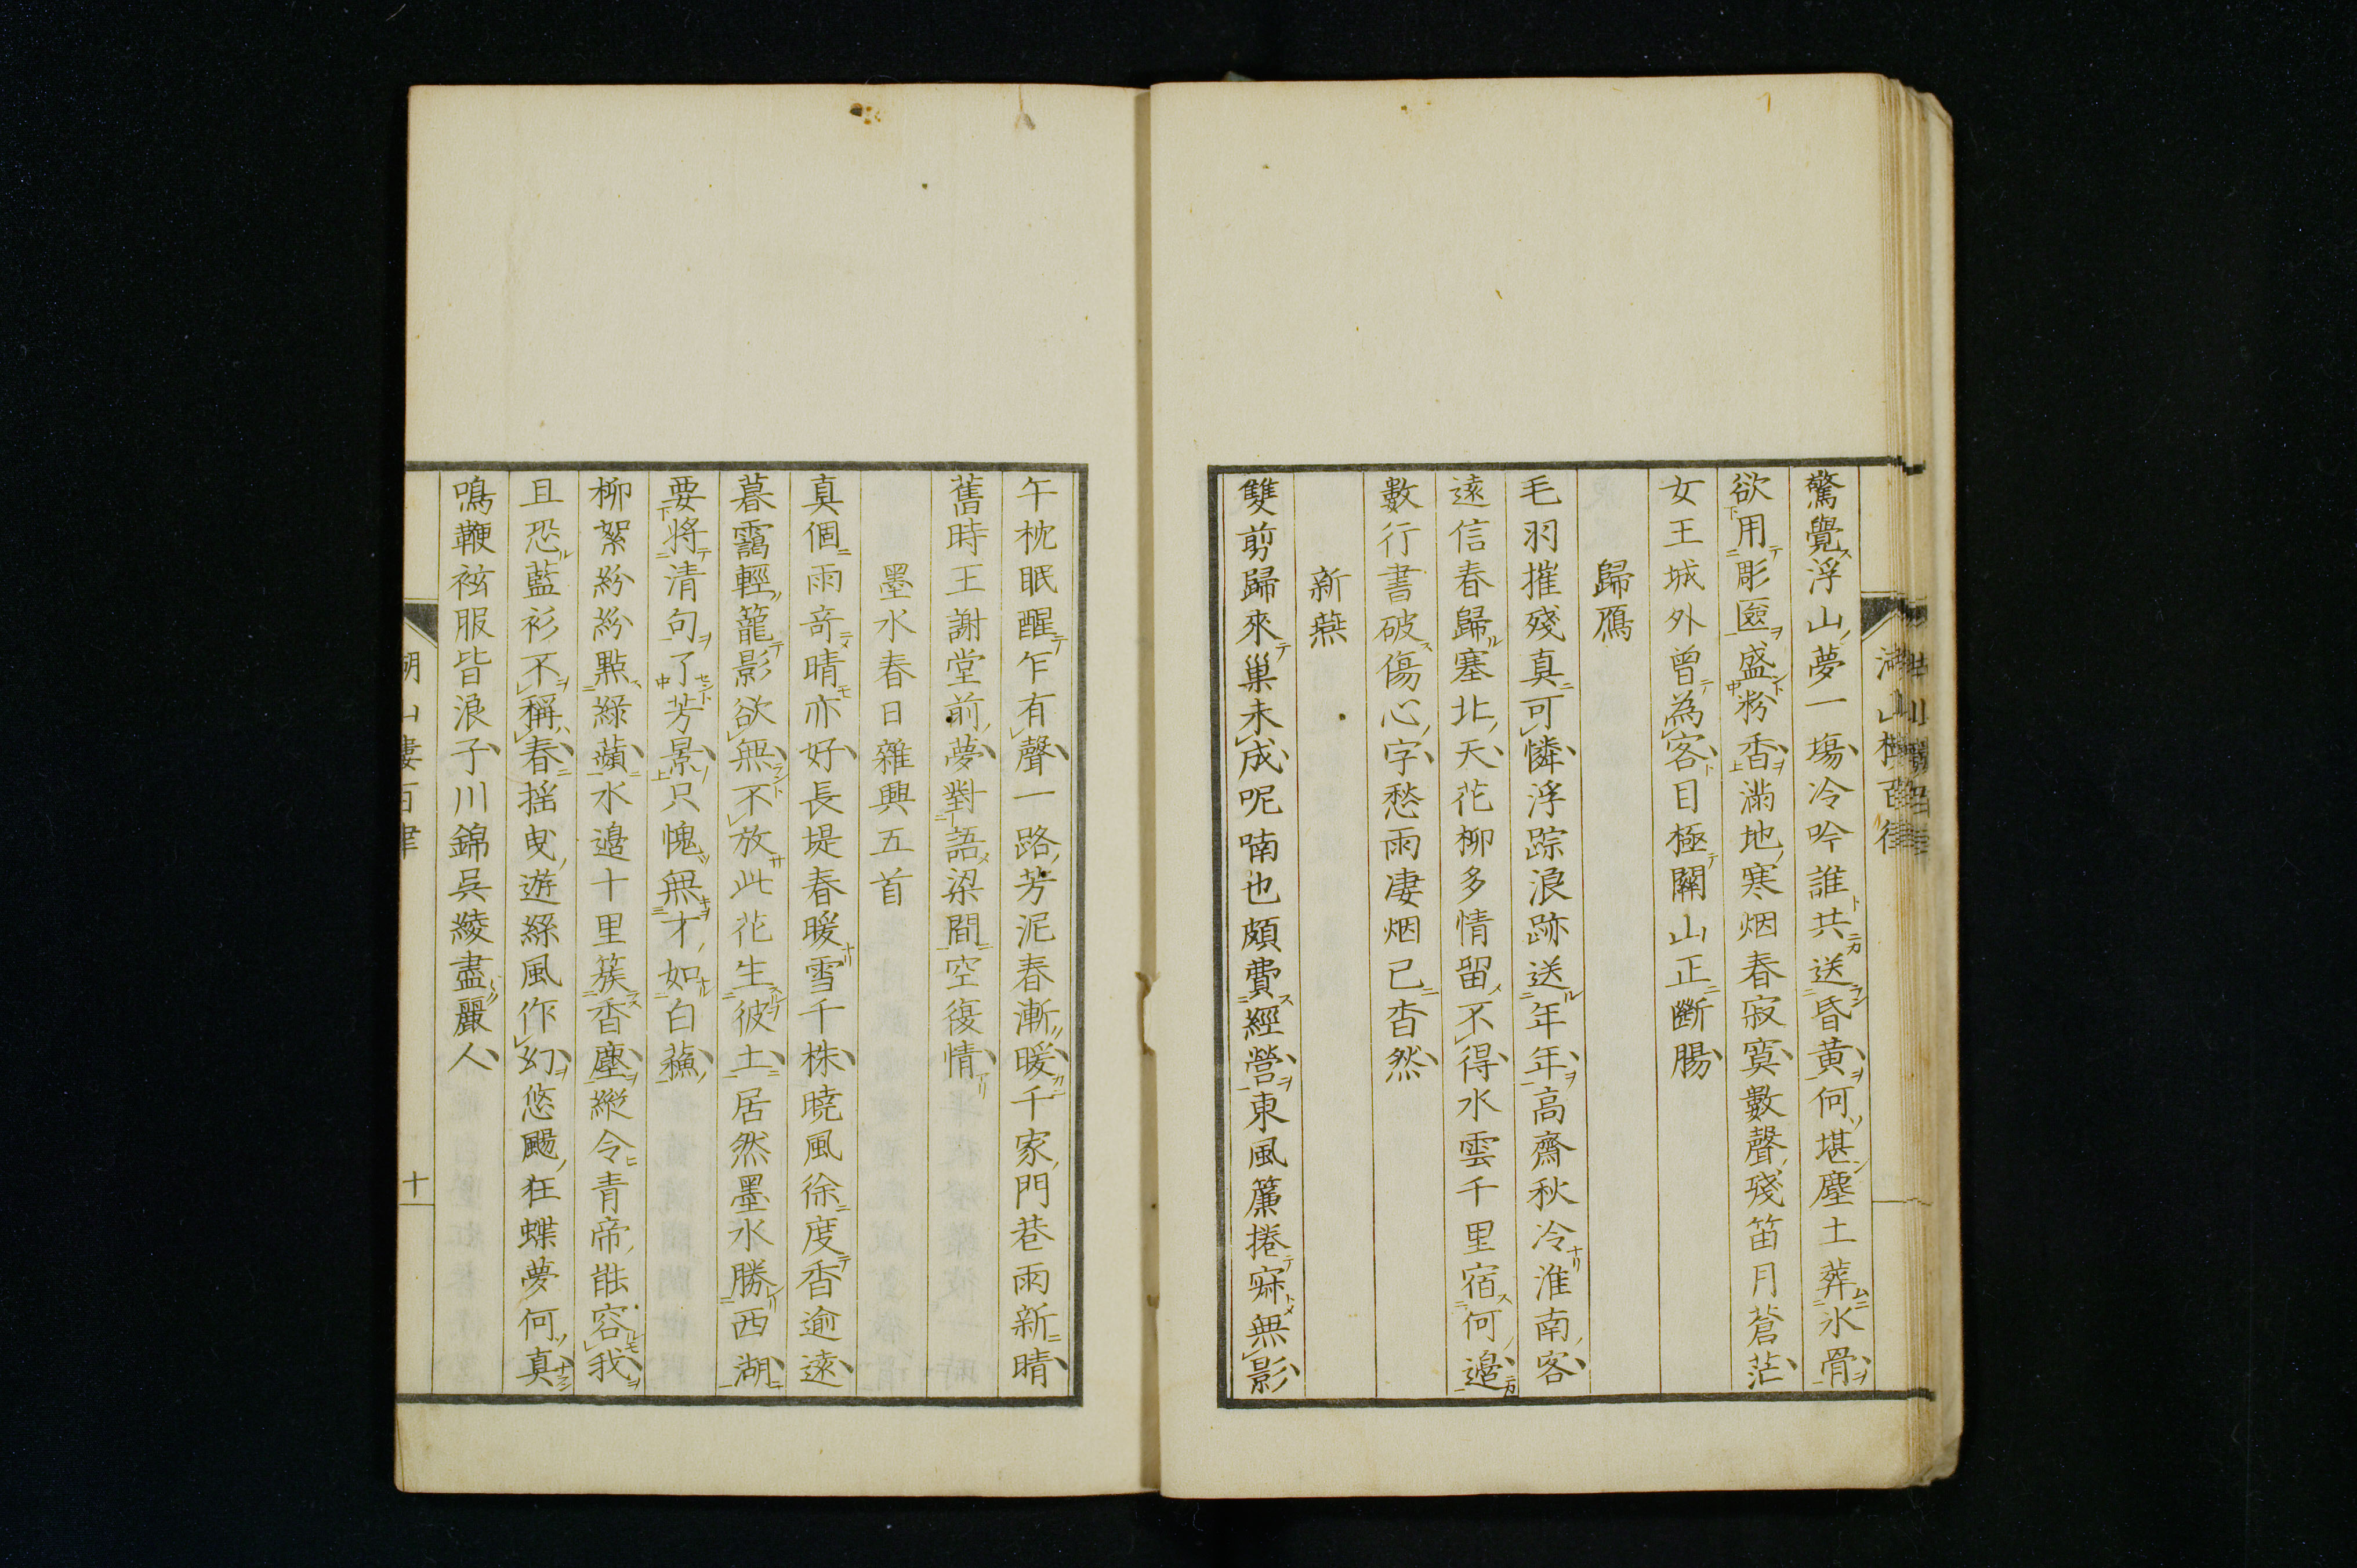 驚覺浮山夢一塲冷吟誰共送昏黄何堪塵土葬氷骨
欲用彫匳盛粉香滿地寒烟春寂寞數聲殘笛月蒼茫
女王城外曾為客目極關山正斷腸
歸鴈
毛羽摧殘真可憐浮踪浪跡送年年高齋秋冷淮南客
遠信春歸塞北天花柳多情留不得水雲千里宿何邉
數行書破傷心字愁雨凄烟已杳然
新燕
雙剪歸來巢未成呢喃也頗費經營東風簾捲寐無影
午枕眠醒乍有聲一路芳泥春漸暖千家門巷雨新晴
舊時王謝堂前夢對語梁間空復情
墨水春日雜興五首
真個雨竒晴亦好長堤春暖雪千株曉風徐度香逾遠
暮靄輕籠影欲無不放此花生彼土居然墨水勝西湖
要將清句了芳景只愧無才如白蘓
柳絮紛紛點綠蘋水邉十里簇香塵縱令青帝能容我
且恐藍衫不稱春揺曳遊絲風作幻悠颺狂蝶夢何真
鳴鞭袨服皆浪子川錦呉綾盡麗人
十